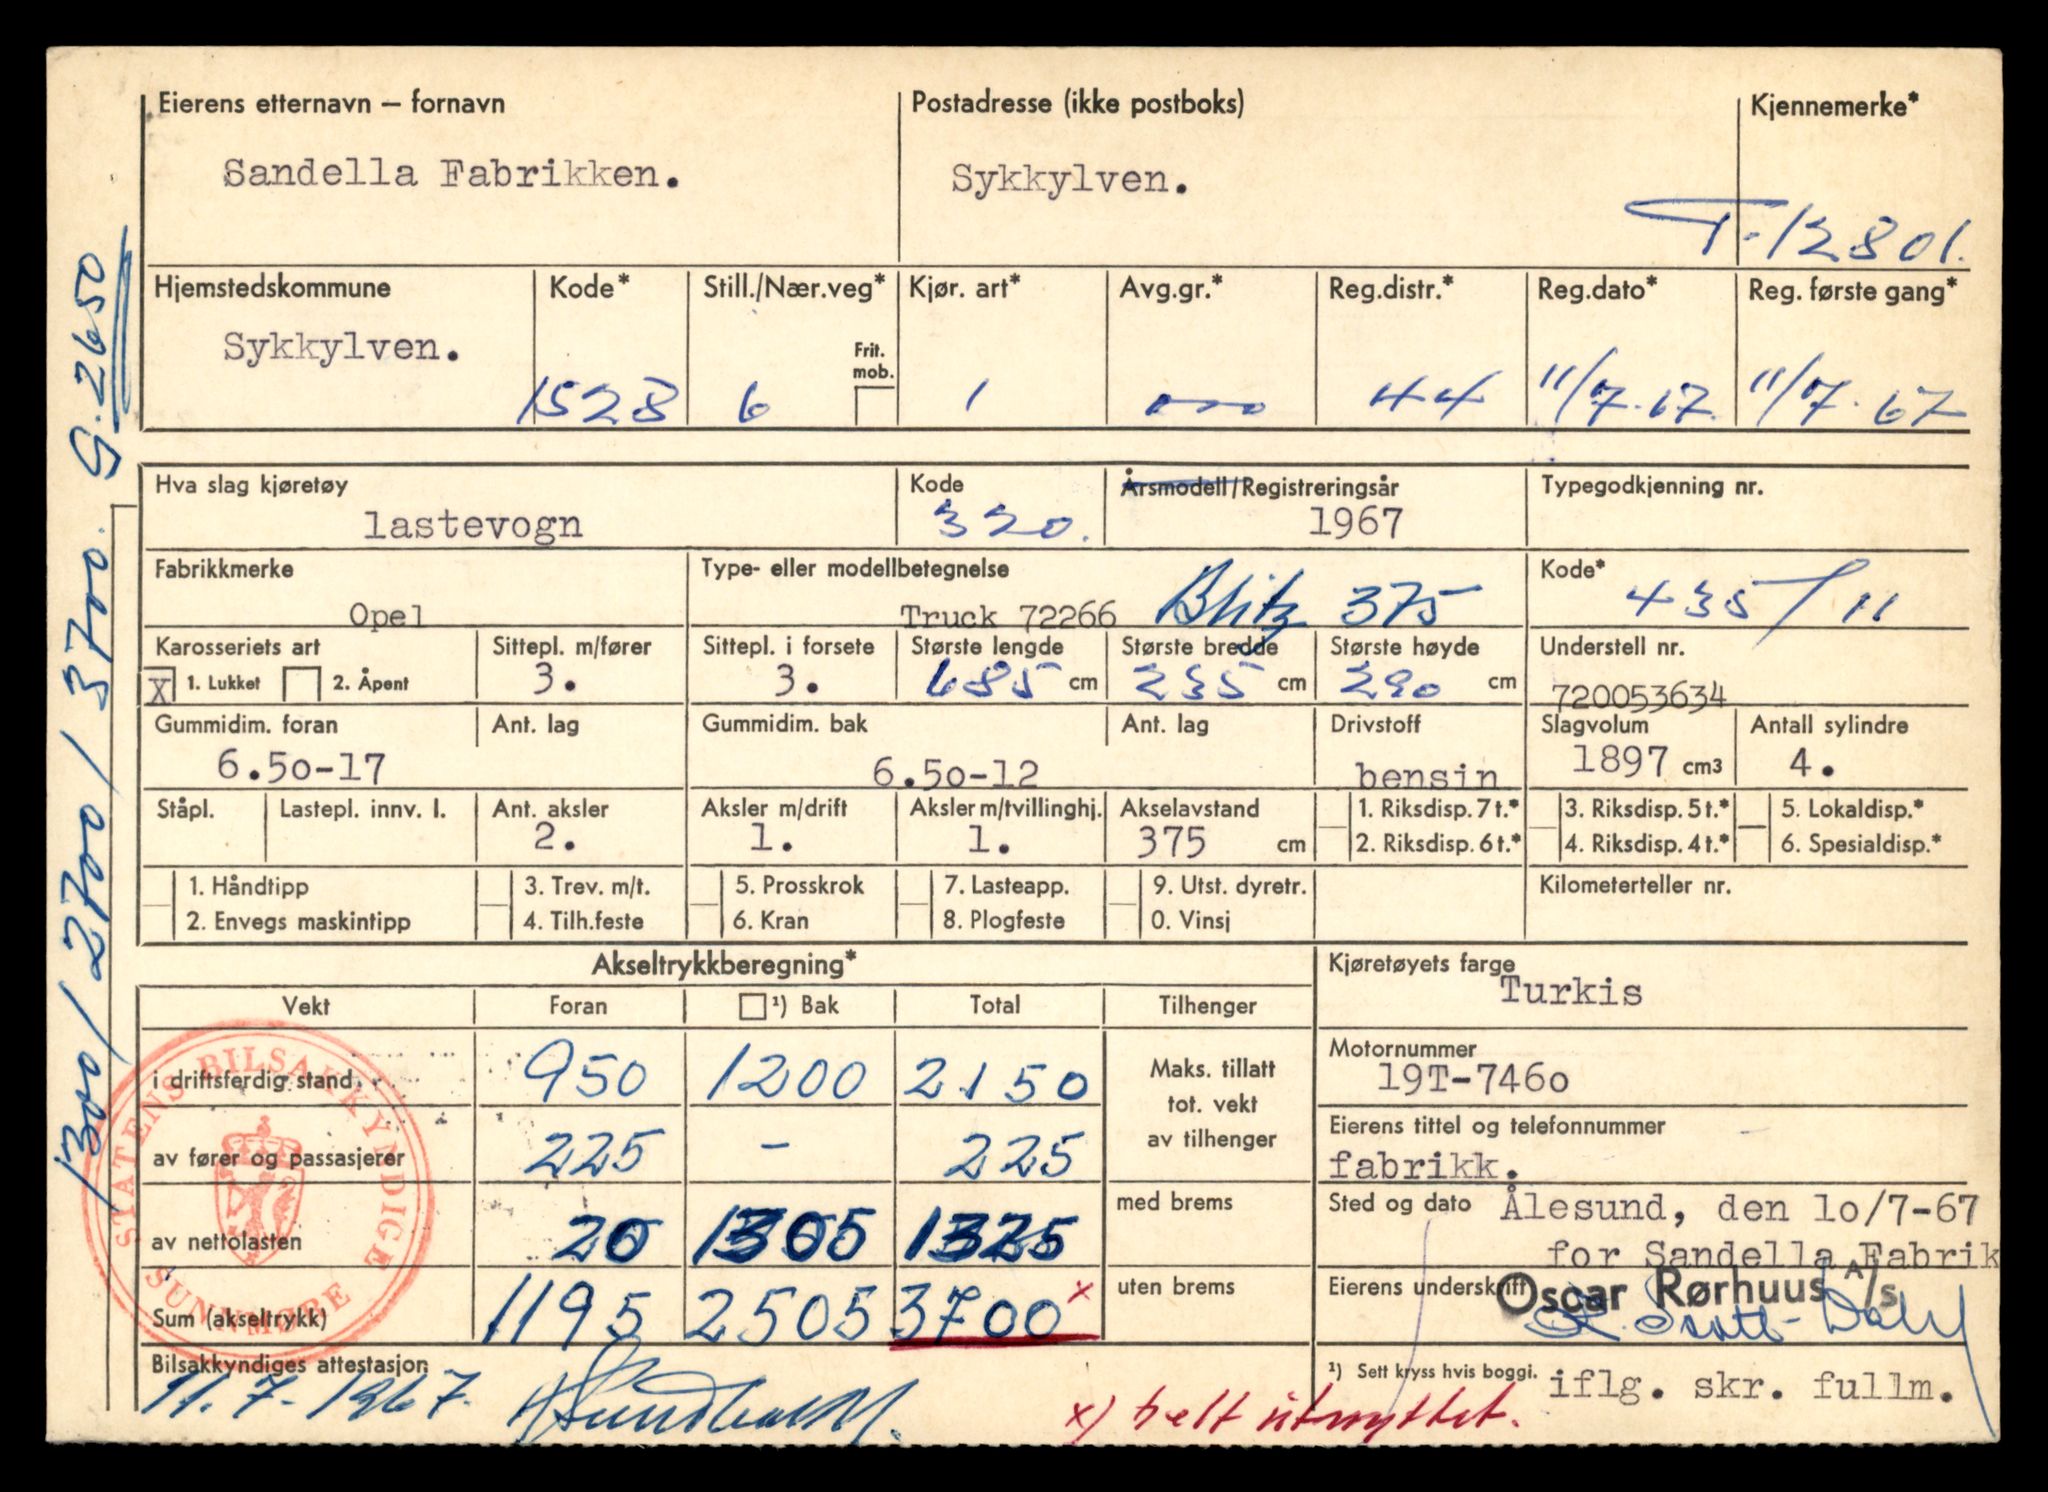 Eierens etternavn – fornavn
Postadresse (ikke postboks)
Kjennemerke*
Sandella Fabrikken.
Sykkylven.
T-12801.
Hjemstedskommune
Kode*
Still./Nær.veg*
Kjør. art*
Avg.gr.*
Reg.distr.*
Reg.dato*
Reg. første gang*
Sykkylven.
Frit. mob.
1528
6
1
44
11/7.67.
11/7.67
Hva slag kjøretøy
Kode
Årsmodell/Registreringsår
Typegodkjenning nr.
lastevogn
320.
1967
Fabrikkmerke
Type- eller modellbetegnelse
Kode*
Opel
Truck 72266 Blitz 375
435/11
Karosseriets art
Sittepl. m/fører
Sittepl. i forsete
Største lengde
Største bredde
Største høyde
Understell nr.
X 1. Lukket
2. Åpent
3.
3.
685 cm
235 cm
290 cm
720053634
Gummidim. foran
Ant. lag
Gummidim. bak
Ant. lag
Drivstoff
Slagvolum
Antall sylindre
6.50-17
6.50-12
bensin
1897 cm3
4.
Ståpl.
Lastepl. innv. l.
Ant. aksler
Aksler m/drift
Aksler m/tvillinghj.
Akselavstand
1. Riksdisp. 7 t.*
3. Riksdisp. 5 t.*
5. Lokaldisp.*
2.
1.
1.
375 cm
2. Riksdisp. 6 t.*
4. Riksdisp. 4 t.*
6. Spesialdisp.*
1. Håndtipp
3. Trev. m/t.
5. Prosskrok
7. Lasteapp.
9. Utst. dyretr.
Kilometerteller nr.
2. Envegs maskintipp
4. Tilh.feste
6. Kran
8. Plogfeste
0. Vinsj
Akseltrykkberegning*
Kjøretøyets farge
Turkis
Vekt
Foran
¹) Bak
Total
Tilhenger
i driftsferdig stand
950
1200
2150
Maks. tillatt
tot. vekt
av tilhenger
Motornummer
19T-7460
av fører og passasjerer
225
-
225
Eierens tittel og telefonnummer
fabrikk.
av nettolasten
20
1305
1325
med brems
Sted og dato Ålesund, den 10/7-67
for Sandella Fabrik
Sum (akseltrykk)
1195
2505
3700 x
uten brems
Eierens underskrift
Oscar Rørhuus A/S
Bilsakkyndiges attestasjon
11.7-1967.
x) helt utnyttet.
¹) Sett kryss hvis boggi.
iflg. skr. fullm.
STATENS BILSAKKYNDIGE
SUNNMØRE
1300/2700/3700. G.2650